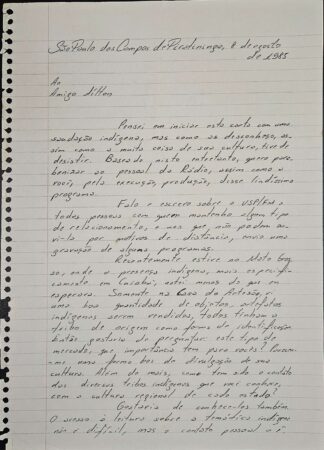 São Paulo dos Campos de Piratininga, 8 de agosto
de 1985
Ao
Amigo Ailton
Pensei em iniciar esta carta com uma
saudação indígena, mas como as desconheço, as-
sim como a muita coisa de sua cultura, tive de
desistir. Baseado nisto entretanto, quero para-
benizar ao pessoal da Rádio, assim como a
você, pela execução, produção, desse lindíssimo
programa.
Falo e escrevo sobre a USP/FM a
todas pessoas com quem mantenho algum tipo
de relacionamento, e aos que não podem ou-
vi-lo por motivos de distância, envio uma
gravação de alguns programas.
Recentemente estive no Mato Gros-
so, onde a presença indígena, mais especifica-
mente em Cuiabá, notei menos do que eu
esperava. Somente na Casa do Artesão, vi
uma boa quantidade de objetos, artefatos
indígenas serem vendidos, todos tinham a
tribo de origem como forma de identificação.
Então, gostaria de perguntar: este tipo de
mercado, que importância tem para vocês? Parece-
me uma forma boa de divulgação de sua
cultura. Além do mais, como tem sido o contato
das diversas tribos indígenas que você conhece,
com a cultura regional de cada estado?
Gostaria de conhecê-los também.
O acesso à leitura sobre a temática indígena
não é difícil, mas o contato pessoal o é.